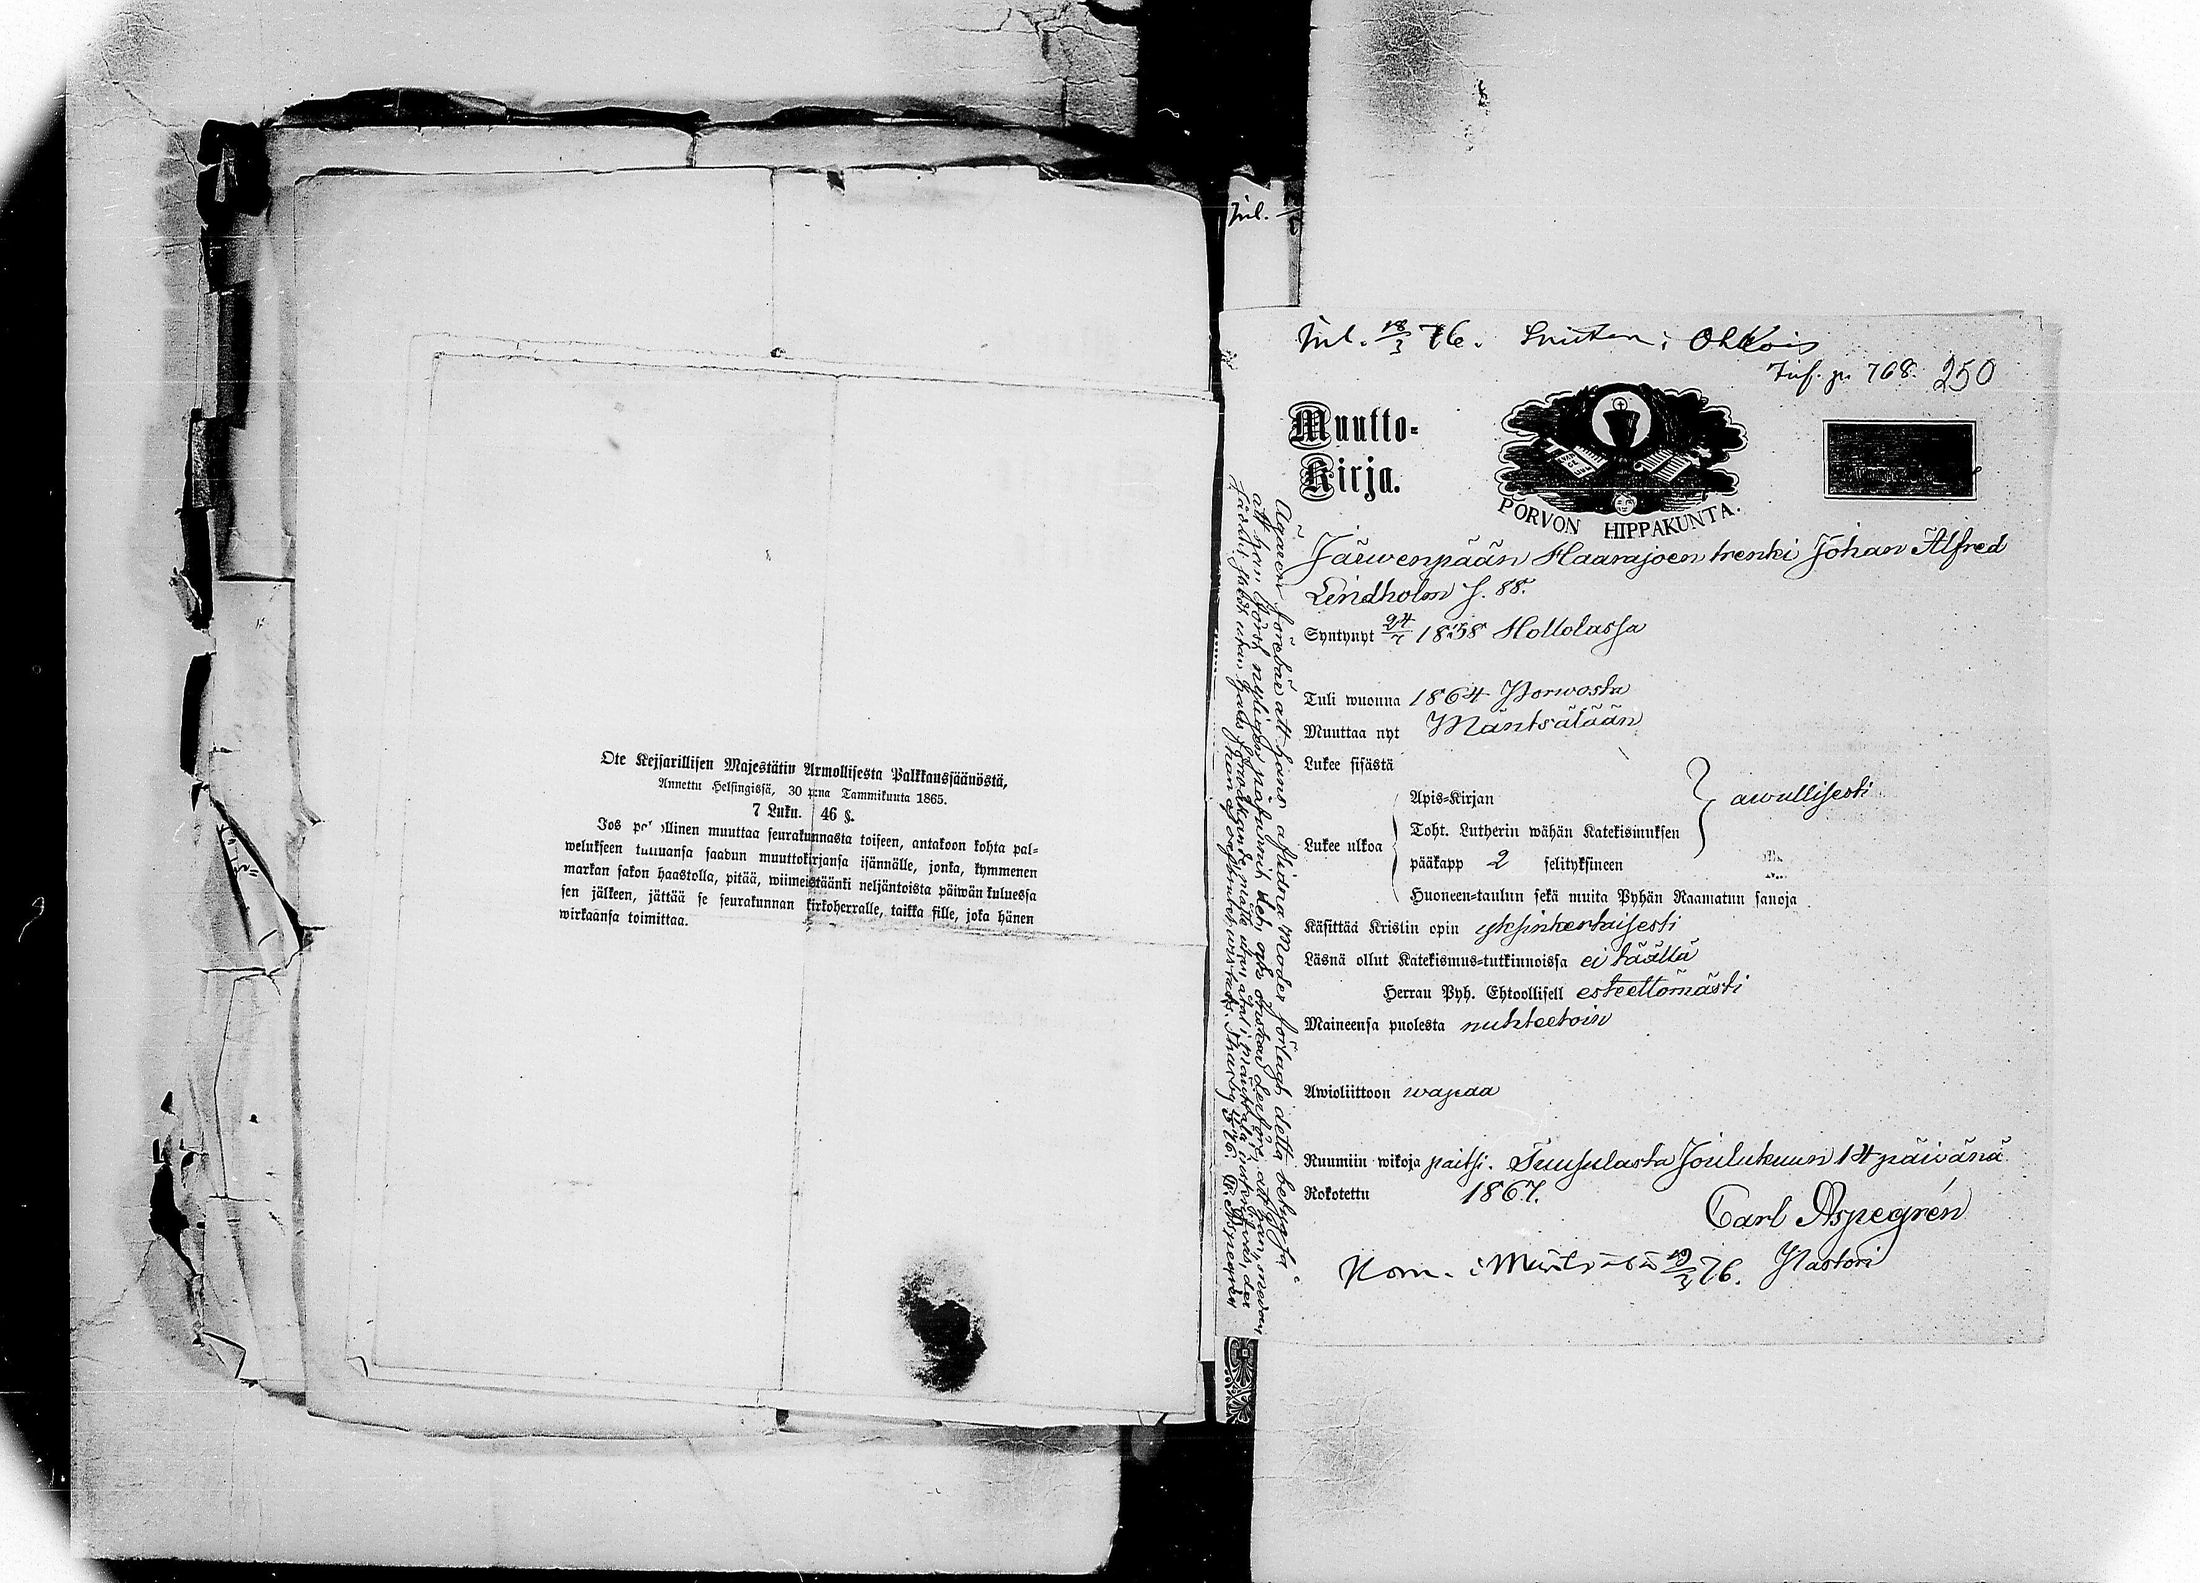 Ote Kejsarillisen Majestätin Armollisesta Palkkaussäänöstä,
Annettu Helsingissä, 30 p:na Tammikuuta 1865.
7 Luku. 46 §.
Jos pa ollinen muuttaa seurakunnasta toiseen, antakoon kohta pal=
welukseen tultuansa saadun muuttokirjansa isännälle, jonka, kymmenen
markan sakon haastolla, pitää, wiimeistäänki neljäntoista päiwän kuluessa
sen jälkeen, jättää se seurakunnan kirkoherralle, taikka sille, joka hänen
wirkaansa toimittaa.
Inl.
Inl. 18/3 76. Ohkois
Inf. p. 768. 250
Muutto=
Kirja.
PORVON HIPPAKUNTA.
Järwenpään Haarajoen trenki Johan Alfred
Lindholm s. 88.
Syntynyt 24/7 1858 Hollolassa
Tuli wuonna 1864 Porwosta
Muuttaa nyt Mäntsälään
Lukee sisästä
Apis=Kirjan
Lukee ulkoa
Toht. Lutherin wähän Katekismuksen
pääkapp 2 selityksineen
Huoneen=taulun sekä muita Pyhän Raamatun sanoja
awullisesti
Käsittää Kristin opin yksinkertaisesti
Läsnä ollut Katekismus=tutkinnoissa ei täällä
Herran Pyh. Ehtoollisell esteettömästi
Maineensa puolesta nuhteetoin
Awioliittoon wapaa
Ruumiin wikoja paitsi. Tuusulasta Joulukuun 14 päiwänä
Rokotettu 1867.
Carl Aspegrén
Pastori
Kom. i Mäntsälä 19/3 76.
Ägaren förebär att hans aflidna Moder förlagt detta betyg så
att han först nyligen påfunnit det, och önskar derföre, att han, medan